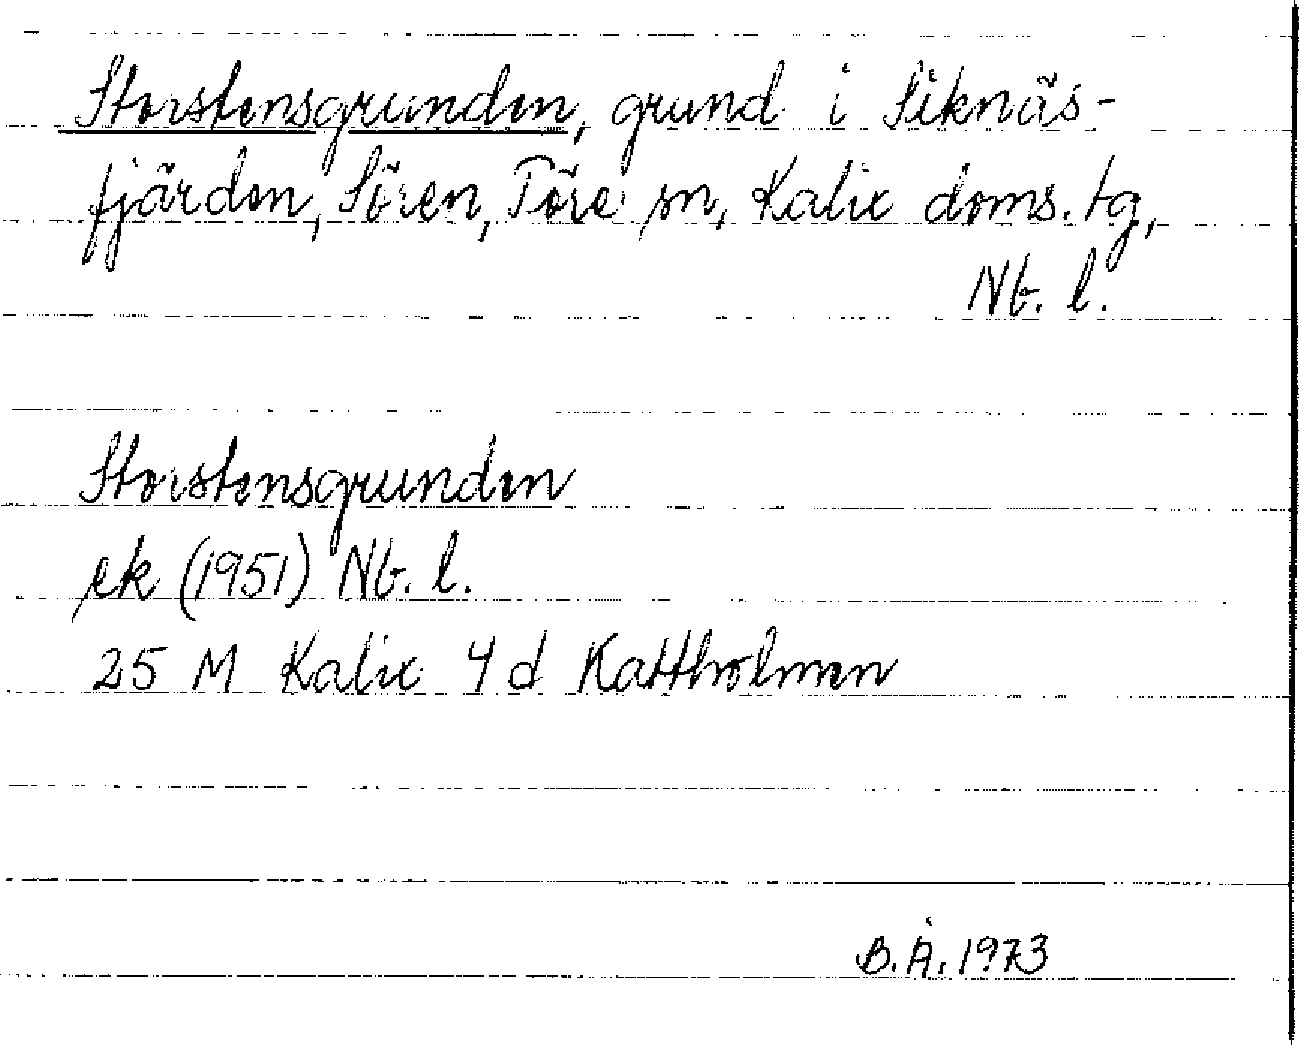 Storstensgrunden, grund i Siknäs-
fjärden, Sören, Töre sn, Kalix doms. tg,
Nb. l.
Storstensgrunden
ek (1951) Nb. l.
25 M Kalix 4d Kattholmen
B. Å. 1973